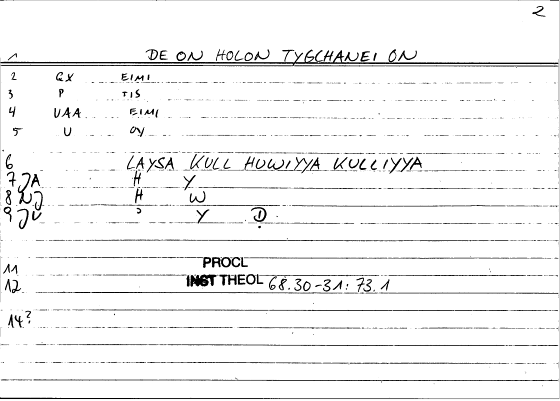 2
1 DE ON HOLON TYGCHANEI ON
2 GX EIMI
3 P TIS
4 UAA EIMI
5 U OY
6 LAYSA KULL HUWIYYA KULLIYYA
7 JA H Y
8 NJ H W
9 JU ? Y D
11 PROCL
12 INST THEOL 68.30-31: 73.1
14?